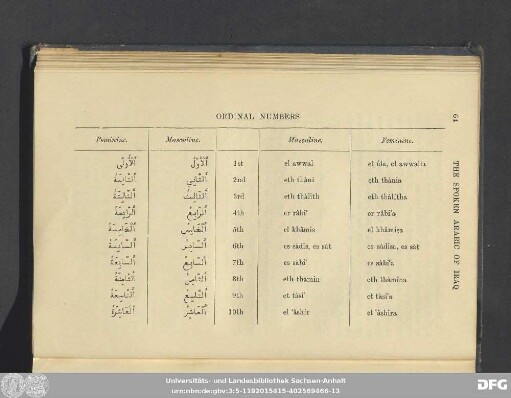 64
THE SPOKEN ARABIC OF IRAQ
ORDINAL NUMBERS
Feminine. Masculine. Masculine. Feminine.
اَلْأُولَى اَلْأَوَّلُ 1st el awwal el ûla, el awwalia
اَلثَّانِيَةُ اَلثَّانِي 2nd eth thâni eth thânia
اَلثَّالِثَةُ اَلثَّالِثُ 3rd eth thâlith eth thâlitha
اَلرَّابِعَةُ اَلرَّابِعُ 4th er râbi' er râbi'a
اَلْخَامِسَةُ اَلْخَامِسُ 5th el khâmis el khâmisa
اَلسَّادِسَةُ اَلسَّادِسُ 6th es sâdis, es sât es sâdisa, es sât
اَلسَّابِعَةُ اَلسَّابِعُ 7th es sâbi' es sâbi'a
اَلثَّامِنَةُ اَلثَّامِنُ 8th eth thâmin eth thâmina
اَلتَّاسِعَةُ اَلتَّاسِعُ 9th et tâsi' et tâsi'a
اَلْعَاشِرَةُ اَلْعَاشِرُ 10th el 'âshir el 'âshira
Universitäts- und Landesbibliothek Sachsen-Anhalt
urn:nbn:de:gbv:3:5-1192015415-402569466-13
DFG